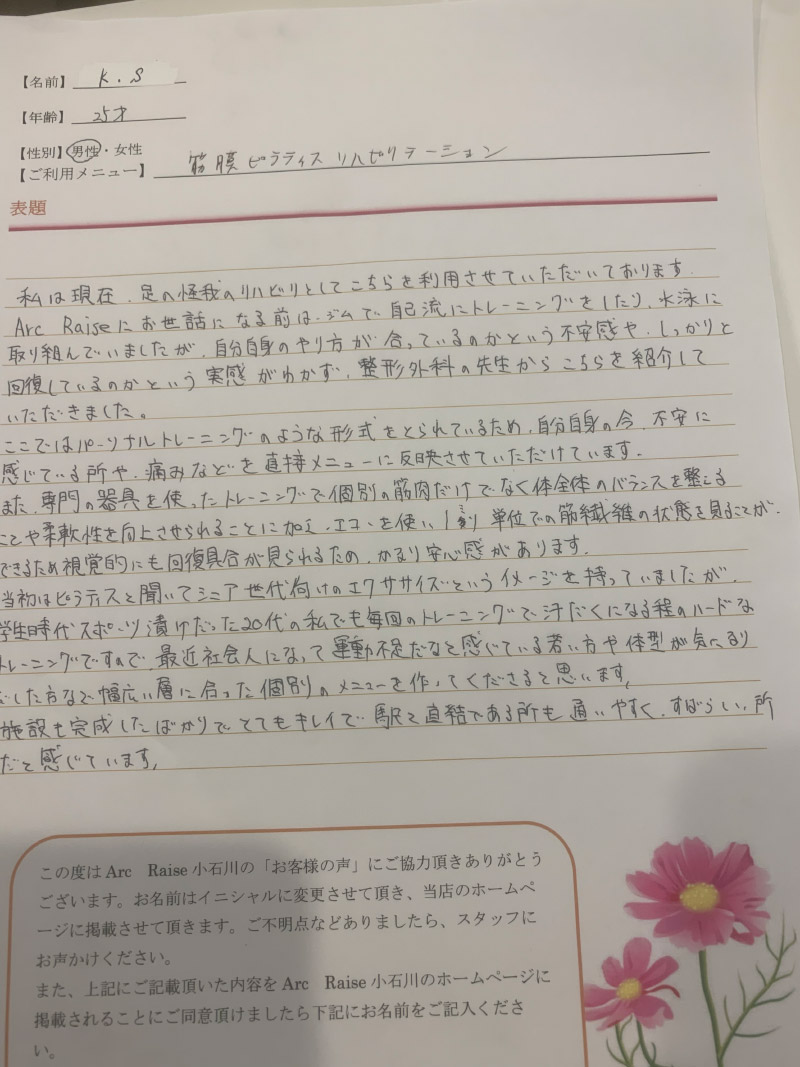 【名前】 K.S
【年齢】 25才
【性別】男性・女性
【ご利用メニュー】 筋膜ピラティスリハビリテーション
表題
私は現在、足の怪我のリハビリとしてこちらを利用させていただいております。
Arc Raiseにお世話になる前は、ジムで自己流にトレーニングをしたり、水泳に
取り組んでいましたが、自分自身のやり方が合っているのかという不安感や、しっかりと
回復しているのかという実感がわかず、整形外科の先生からこちらを紹介して
いただきました。
ここではパーソナルトレーニングのような形式をとられているため、自分自身の今、不安に
感じている所や、痛みなどを直接メニューに反映させていただけています。
また、専門の器具を使ったトレーニングで個別の筋肉だけでなく体全体のバランスを整える
ことや柔軟性を向上させられることに加え、エコーを使い1ミリ単位での筋繊維の状態を見ることが
できるため視覚的にも回復具合が見られるため、かなり安心感があります。
当初はピラティスと聞いてシニア世代向けのエクササイズというイメージを持っていましたが、
学生時代スポーツ漬けだった20代の私でも毎回のトレーニングで汗だくになる程のハードな
トレーニングですので、最近社会人になって運動不足だなと感じている若い方や体型が気になり
だした方など幅広い層に合った個別のメニューを作ってくださると思います。
施設も完成したばかりでとてもキレイで、駅と直結である所も通いやすく、すばらしい所
だと感じています。
この度は Arc Raise 小石川の「お客様の声」にご協力頂きありがとう
ございます。お名前はイニシャルに変更させて頂き、当店のホームペ
ージに掲載させて頂きます。ご不明点などありましたら、スタッフに
お声かけください。
また、上記にご記載頂いた内容を Arc Raise 小石川のホームページに
掲載されることにご同意頂けましたら下記にお名前をご記入くださ
い。